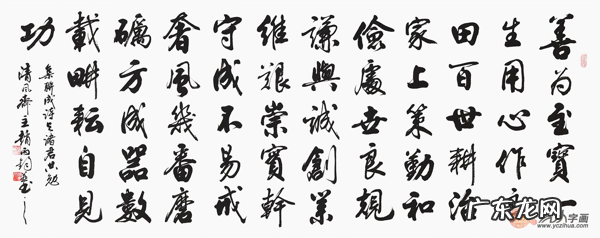 善為至寶一
生用心作
田百世耕治
家上策勤和
儉處世良規
謙與誠創業
維艱崇實幹
守成不易戒
奢風幾番磨
礪方成器數
載畊耘自見
功
集聯成詩與諸君共勉
清風齋主
广东龙网
www.yczihua.com